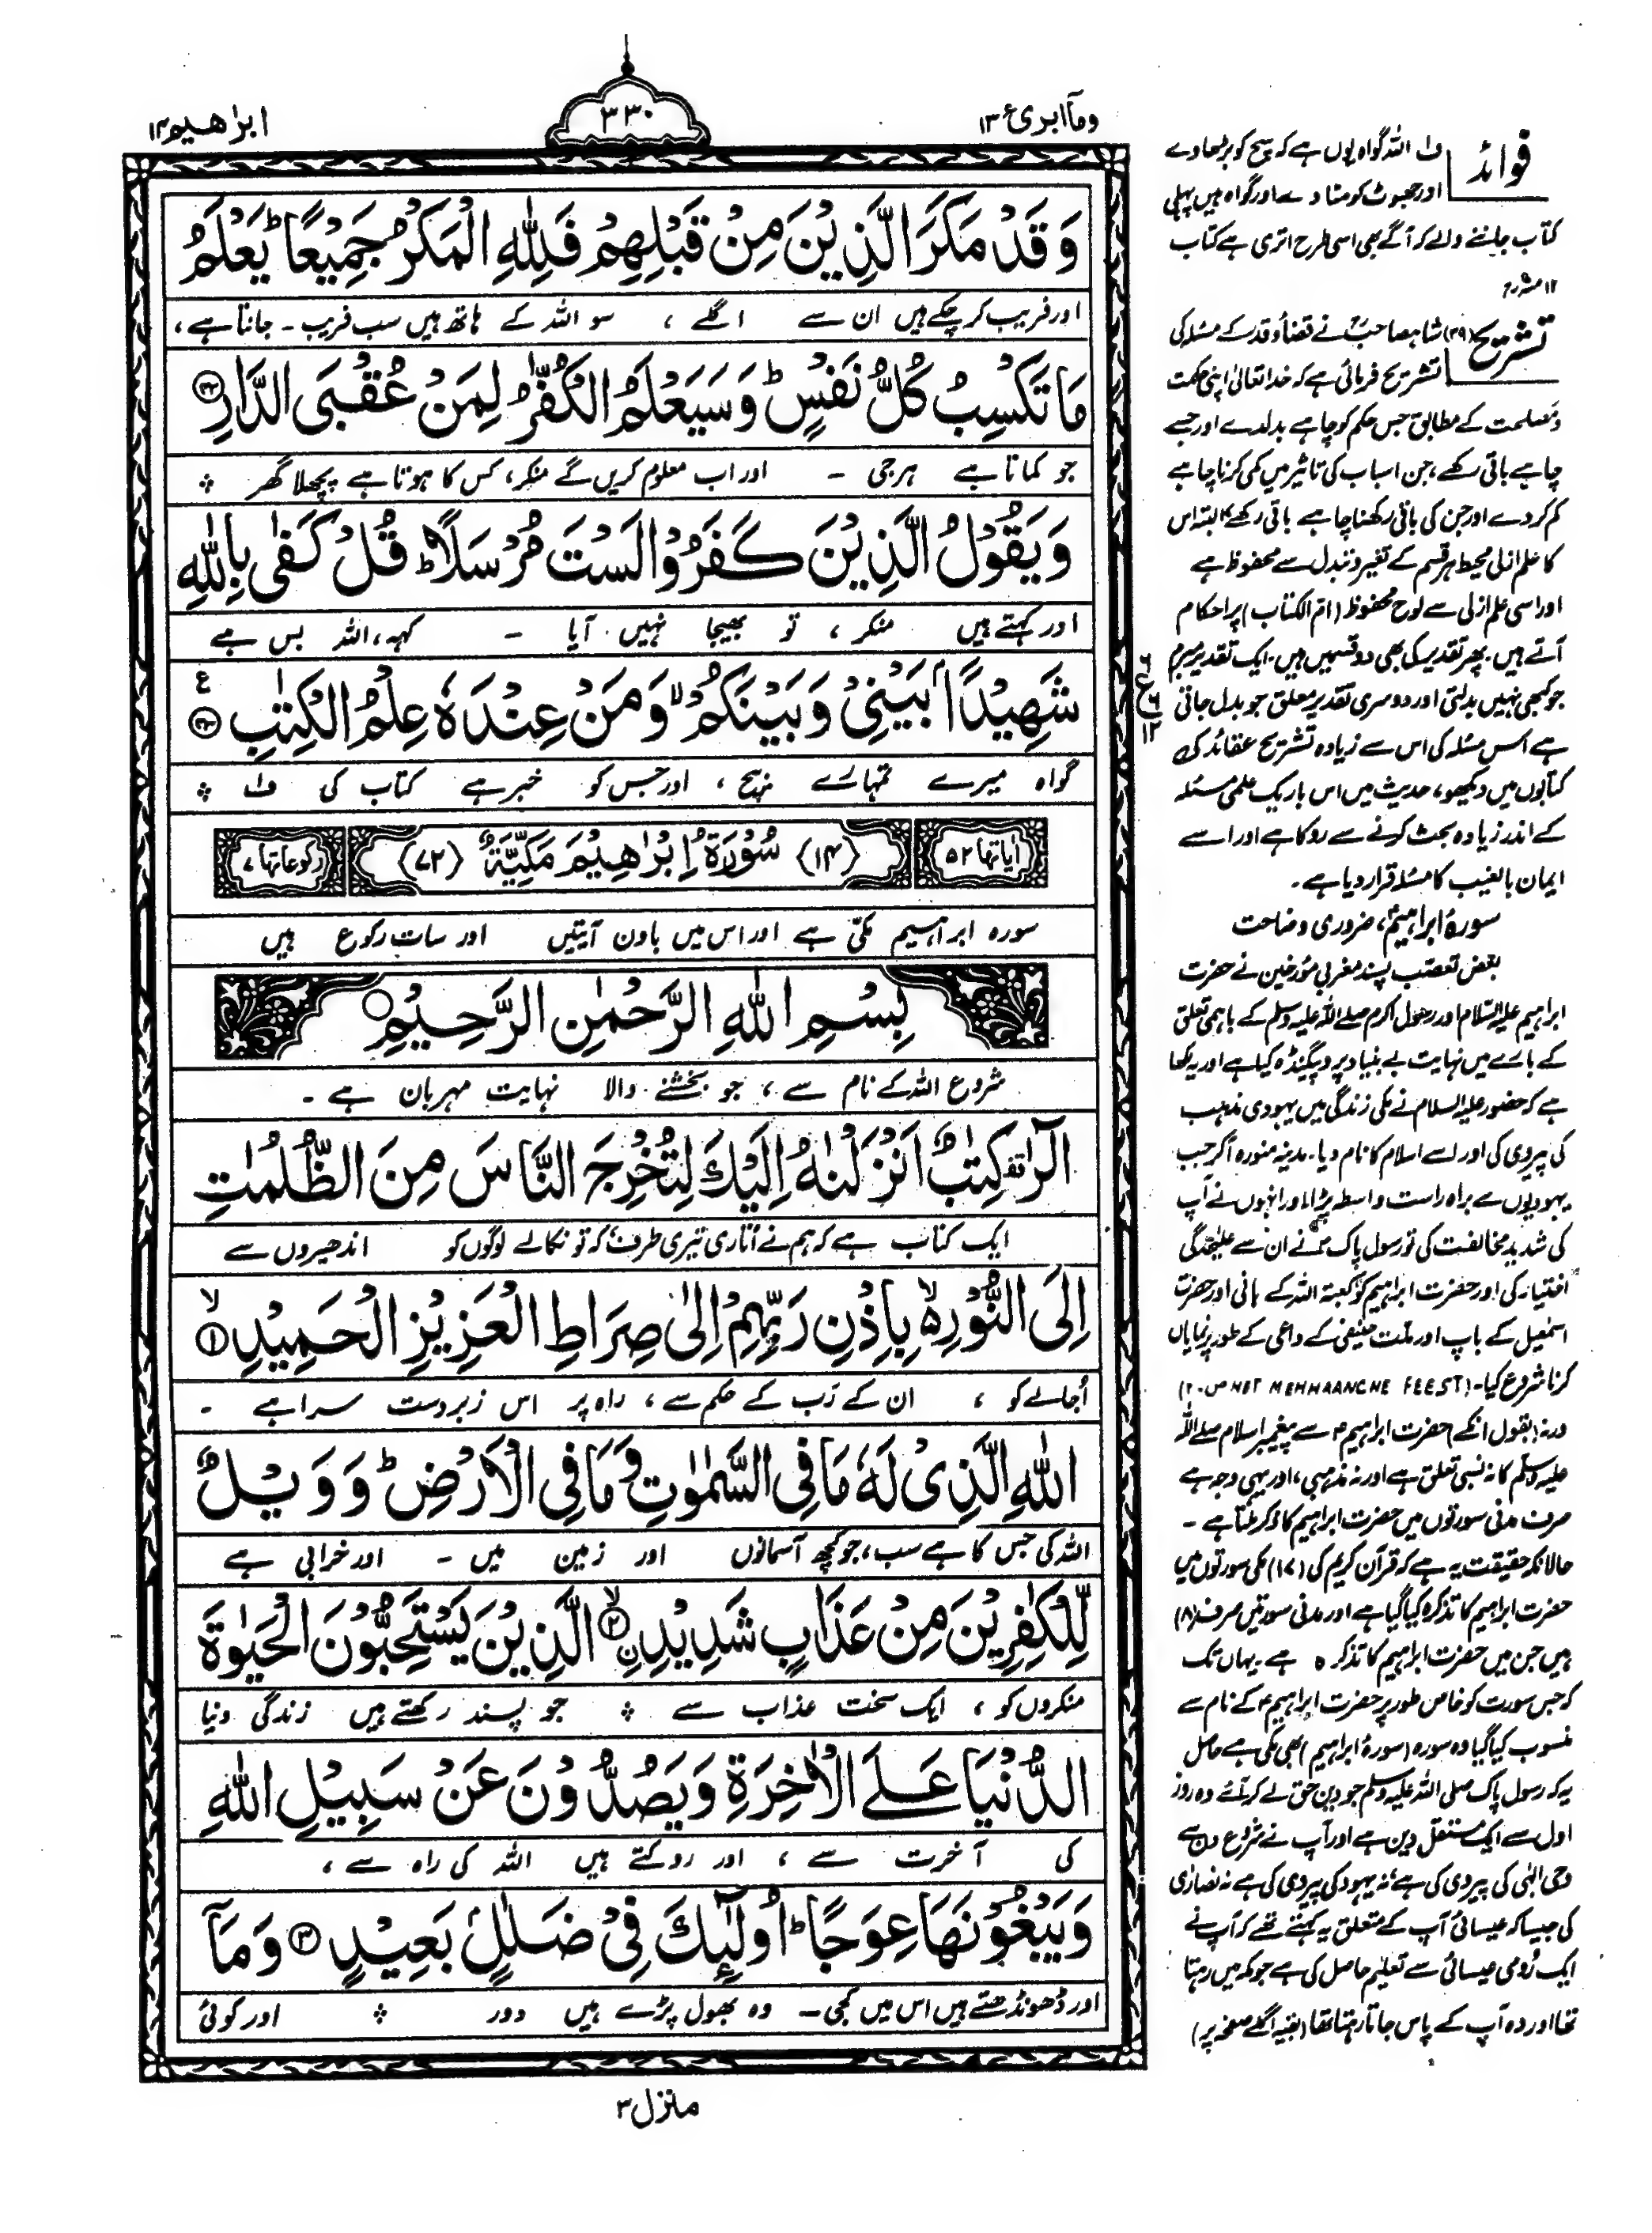 وما ابرئ ١٣
٣٣٠
ابراهيم ١٤
وَقَدْ مَكَرَ الَّذِيْنَ مِنْ قَبْلِهِمْ فَلِلّٰهِ الْمَكْرُ جَمِيْعًا ؕ يَعْلَمُ
اور فریب کر چکے ہیں ان سے اگلے ، سو اللہ کے ہاتھ ہیں سب فریب ۔ جانتا ہے ،
مَا تَكْسِبُ كُلُّ نَفْسٍ ؕ وَسَيَعْلَمُ الْكُفّٰرُ لِمَنْ عُقْبَى الدَّارِ ۝۴۲
جو کماتا ہے ہر جی ۔ اور اب معلوم کریں گے منکر ، کس کا ہوتا ہے پچھلا گھر ؞
وَيَقُوْلُ الَّذِيْنَ كَفَرُوْا لَسْتَ مُرْسَلًا ؕ قُلْ كَفٰى بِاللّٰهِ
اور کہتے ہیں منکر ، تو بھیجا نہیں آیا ۔ کہہ ، اللہ بس ہے
شَهِيْدًۢا بَيْنِيْ وَبَيْنَكُمْ ۙ وَمَنْ عِنْدَهٗ عِلْمُ الْكِتٰبِ ۝۴۳ ع
گواہ میرے تمہارے بیچ ، اور جس کو خبر ہے کتاب کی ف۱ ؞
اٰیاتها ۵۲ (۱۴) سُوْرَةُ اِبْرٰهِيْمَ مَكِّيَّةٌ (۷۲) رکوعاتها ۷
سورہ ابراہیم مکی ہے اور اس میں باون آیتیں اور سات رکوع ہیں
بِسْمِ اللّٰهِ الرَّحْمٰنِ الرَّحِيْمِ
شروع اللہ کے نام سے ، جو بخشنے والا نہایت مہربان ہے ۔
الٓرٰ ۫ كِتٰبٌ اَنْزَلْنٰهُ اِلَيْكَ لِتُخْرِجَ النَّاسَ مِنَ الظُّلُمٰتِ
ایک کتاب ہے کہ ہم نے اتاری تیری طرف کہ تو نکالے لوگوں کو اندھیروں سے
اِلَى النُّوْرِ ۙ بِاِذْنِ رَبِّهِمْ اِلٰى صِرَاطِ الْعَزِيْزِ الْحَمِيْدِ ۝۱ۙ
اُجالے کو ، ان کے رَب کے حکم سے ، راہ پر اس زبردست سراہے ۔
اللّٰهِ الَّذِيْ لَهٗ مَا فِي السَّمٰوٰتِ وَمَا فِي الْاَرْضِ ؕ وَوَيْلٌ
اللہ کی جس کا ہے سب ، جو کچھ آسمانوں اور زمین میں ۔ اور خرابی ہے
لِّلْكٰفِرِيْنَ مِنْ عَذَابٍ شَدِيْدِ ۝۲ۙ الَّذِيْنَ يَسْتَحِبُّوْنَ الْحَيٰوةَ
منکروں کو ، ایک سخت عذاب سے ؞ جو پسند رکھتے ہیں زندگی دنیا
الدُّنْيَا عَلَى الْاٰخِرَةِ وَيَصُدُّوْنَ عَنْ سَبِيْلِ اللّٰهِ
کی آخرت سے ، اور روکتے ہیں اللہ کی راہ سے ،
وَيَبْغُوْنَهَا عِوَجًا ؕ اُولٰٓئِكَ فِيْ ضَلٰلٍۢ بَعِيْدٍ ۝۳ وَمَآ
اور ڈھونڈھتے ہیں اس میں کجی ۔ وہ بھول پڑے ہیں دور ؞ اور کوئی
منزل ۳
فوائد
ف۱ اللہ گواہ یوں ہے کہ سچ کو بڑھاوے
اور جھوٹ کو مٹا دے اور گواہ ہیں پہلی
کتاب جاننے والے کہ آگے بھی اسی طرح اتری ہے کتاب
۱۲ منہ رح
تشریح
(۳۹) شاہ صاحبؒ نے قضاؤ قدر کے مسئلہ کی
تشریح فرمائی ہے کہ خدا تعالیٰ اپنی حکمت
و مصلحت کے مطابق جس حکم کو چاہے بدلدے اور جسے
چاہے باقی رکھے ، جن اسباب کی تاثیر میں کمی کرنا چاہے
کم کردے اور جن کی باقی رکھنا چاہے باقی رکھے البتہ اس
کا علم ازلی محیط ہر قسم کے تغیر و تبدل سے محفوظ ہے
اور اسی علم ازلی سے لوح محفوظ (ام الکتاب) پر احکام
آتے ہیں ۔ پھر تقدیر کی بھی دو قسمیں ہیں ۔ ایک تقدیر مبرم
جو کبھی نہیں بدلتی اور دوسری تقدیر معلق جو بدل جاتی
ہے اس مسئلہ کی اس سے زیادہ تشریح عقائد کی
کتابوں میں دیکھو ، حدیث میں اس باریک علمی مسئلہ
کے اندر زیادہ بحث کرنے سے روکا ہے اور اسے
ایمان بالغیب کا مسئلہ قرار دیا ہے ۔
سورۂ ابراہیمؑ ، ضروری وضاحت
بعض تعصب پسند مغربی مؤرخین نے حضرت
ابراہیم علیہ السلام اور رسول اکرم صلے اللہ علیہ وسلم کے باہمی تعلق
کے بارے میں نہایت بے بنیاد پروپیگنڈہ کیا ہے اور یہ لکھا
ہے کہ حضور علیہ السلام نے مکی زندگی میں یہودی مذہب
کی پیروی کی اور اسے اسلام کا نام دیا ۔ مدینہ منورہ آکر جب
یہودیوں سے براہ راست واسطہ پڑا اور انہوں نے آپ
کی شدید مخالفت کی تو رسول پاکؐ نے ان سے علیحدگی
اختیار کی اور حضرت ابراہیم کو کعبۃ اللہ کے بانی اور حضرت
اسمٰعیل کے باپ اور ملت حنیفی کے داعی کے طور پر نمایاں
کرنا شروع کیا ۔ (HET MEHHAANCHE FEEST ص ۲۰)
ورنہ (بقول انکے) حضرت ابراہیمؑ سے پیغمبر اسلام صلے اللہ
علیہ وسلم کا نہ نسبی تعلق ہے اور نہ مذہبی ، اور یہی وجہ ہے
صرف مدنی سورتوں میں حضرت ابراہیم کا ذکر ملتا ہے ۔
حالانکہ حقیقت یہ ہے کہ قرآن کریم کی (۱۷) مکی سورتوں میں
حضرت ابراہیم کا تذکرہ کیا گیا ہے اور مدنی سورتیں صرف (۸)
ہیں جن میں حضرت ابراہیم کا تذکرہ ہے ۔ یہاں تک
کہ جس سورت کو خاص طور پر حضرت ابراہیمؑ کے نام سے
منسوب کیا گیا وہ سورہ (سورۂ ابراہیم) بھی مکی ہے حاصل
یہ کہ رسول پاک صلی اللہ علیہ وسلم جو دین حق لے کر آئے وہ روز
اول سے ایک مستقل دین ہے اور آپ نے شروع دن سے
وحی الٰہی کی پیروی کی ہے ، نہ یہود کی پیروی کی ہے نہ نصاریٰ
کی جیسا کہ عیسائی آپ کے متعلق یہ کہتے تھے کہ آپ نے
ایک رُومی عیسائی سے تعلیم حاصل کی ہے جو مکہ میں رہتا
تھا اور وہ آپ کے پاس جاتا رہتا تھا (بقیہ اگلے صفحہ پر)